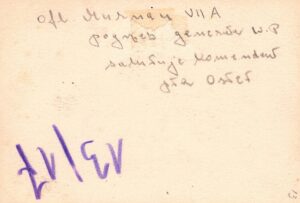 ofl Murnau VII A
pogrzeb generała W.P
salutuje komendant
płk Oster
13/17